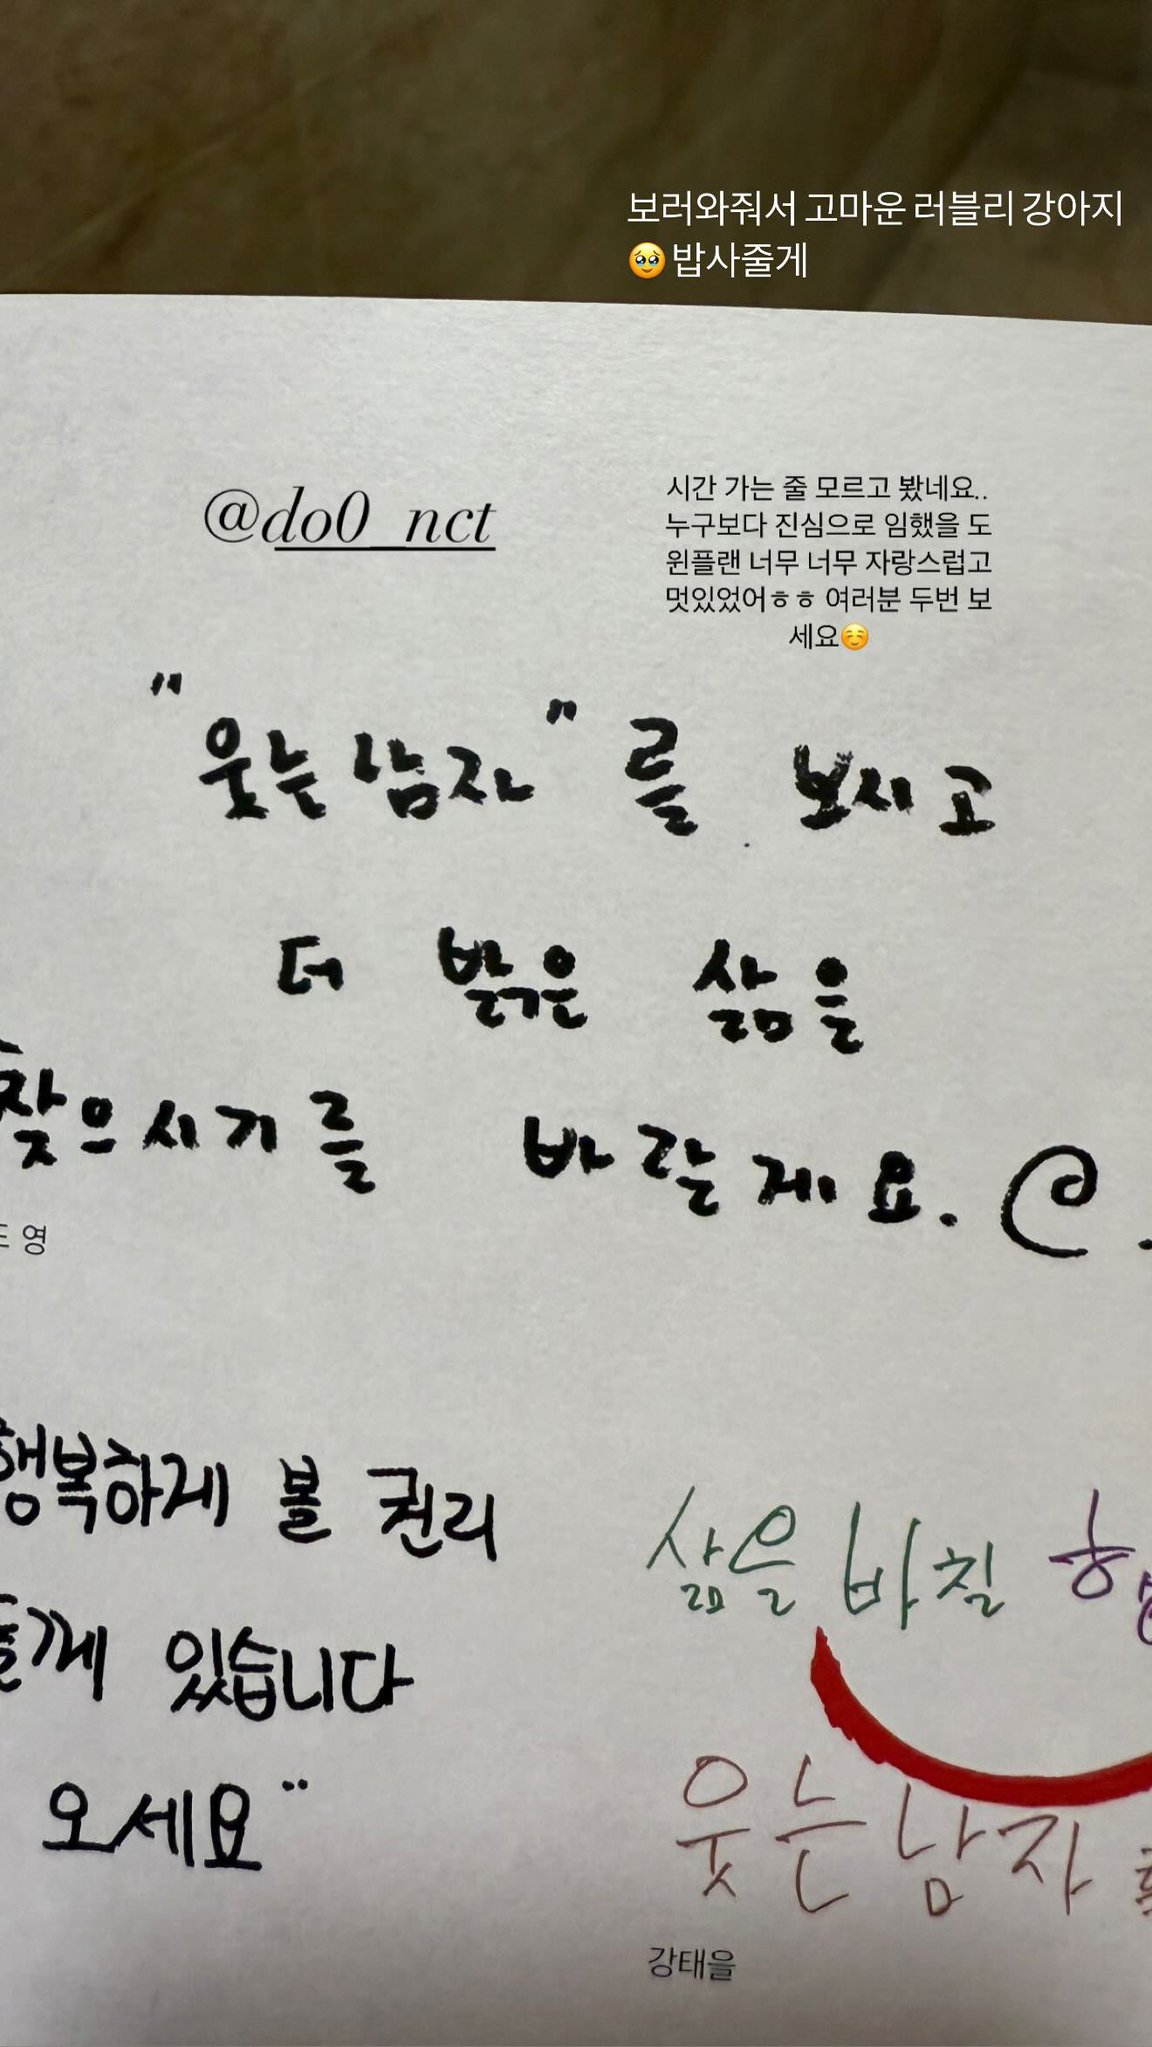 보러와줘서 고마운 러블리 강아지
🥹 밥사줄게
@do0_nct
시간 가는 줄 모르고 봤네요..
누구보다 진심으로 임했을 도
윈플랜 너무 너무 자랑스럽고
멋있었어ㅎㅎ 여러분 두번 보
세요☺️
"웃는 남자"를 보시고
더 밝은 삶을
찾으시기를 바랄게요.
영
행복하게 볼 권리
있습니다
오세요"
삶을 바칠
웃는 남자
강태을